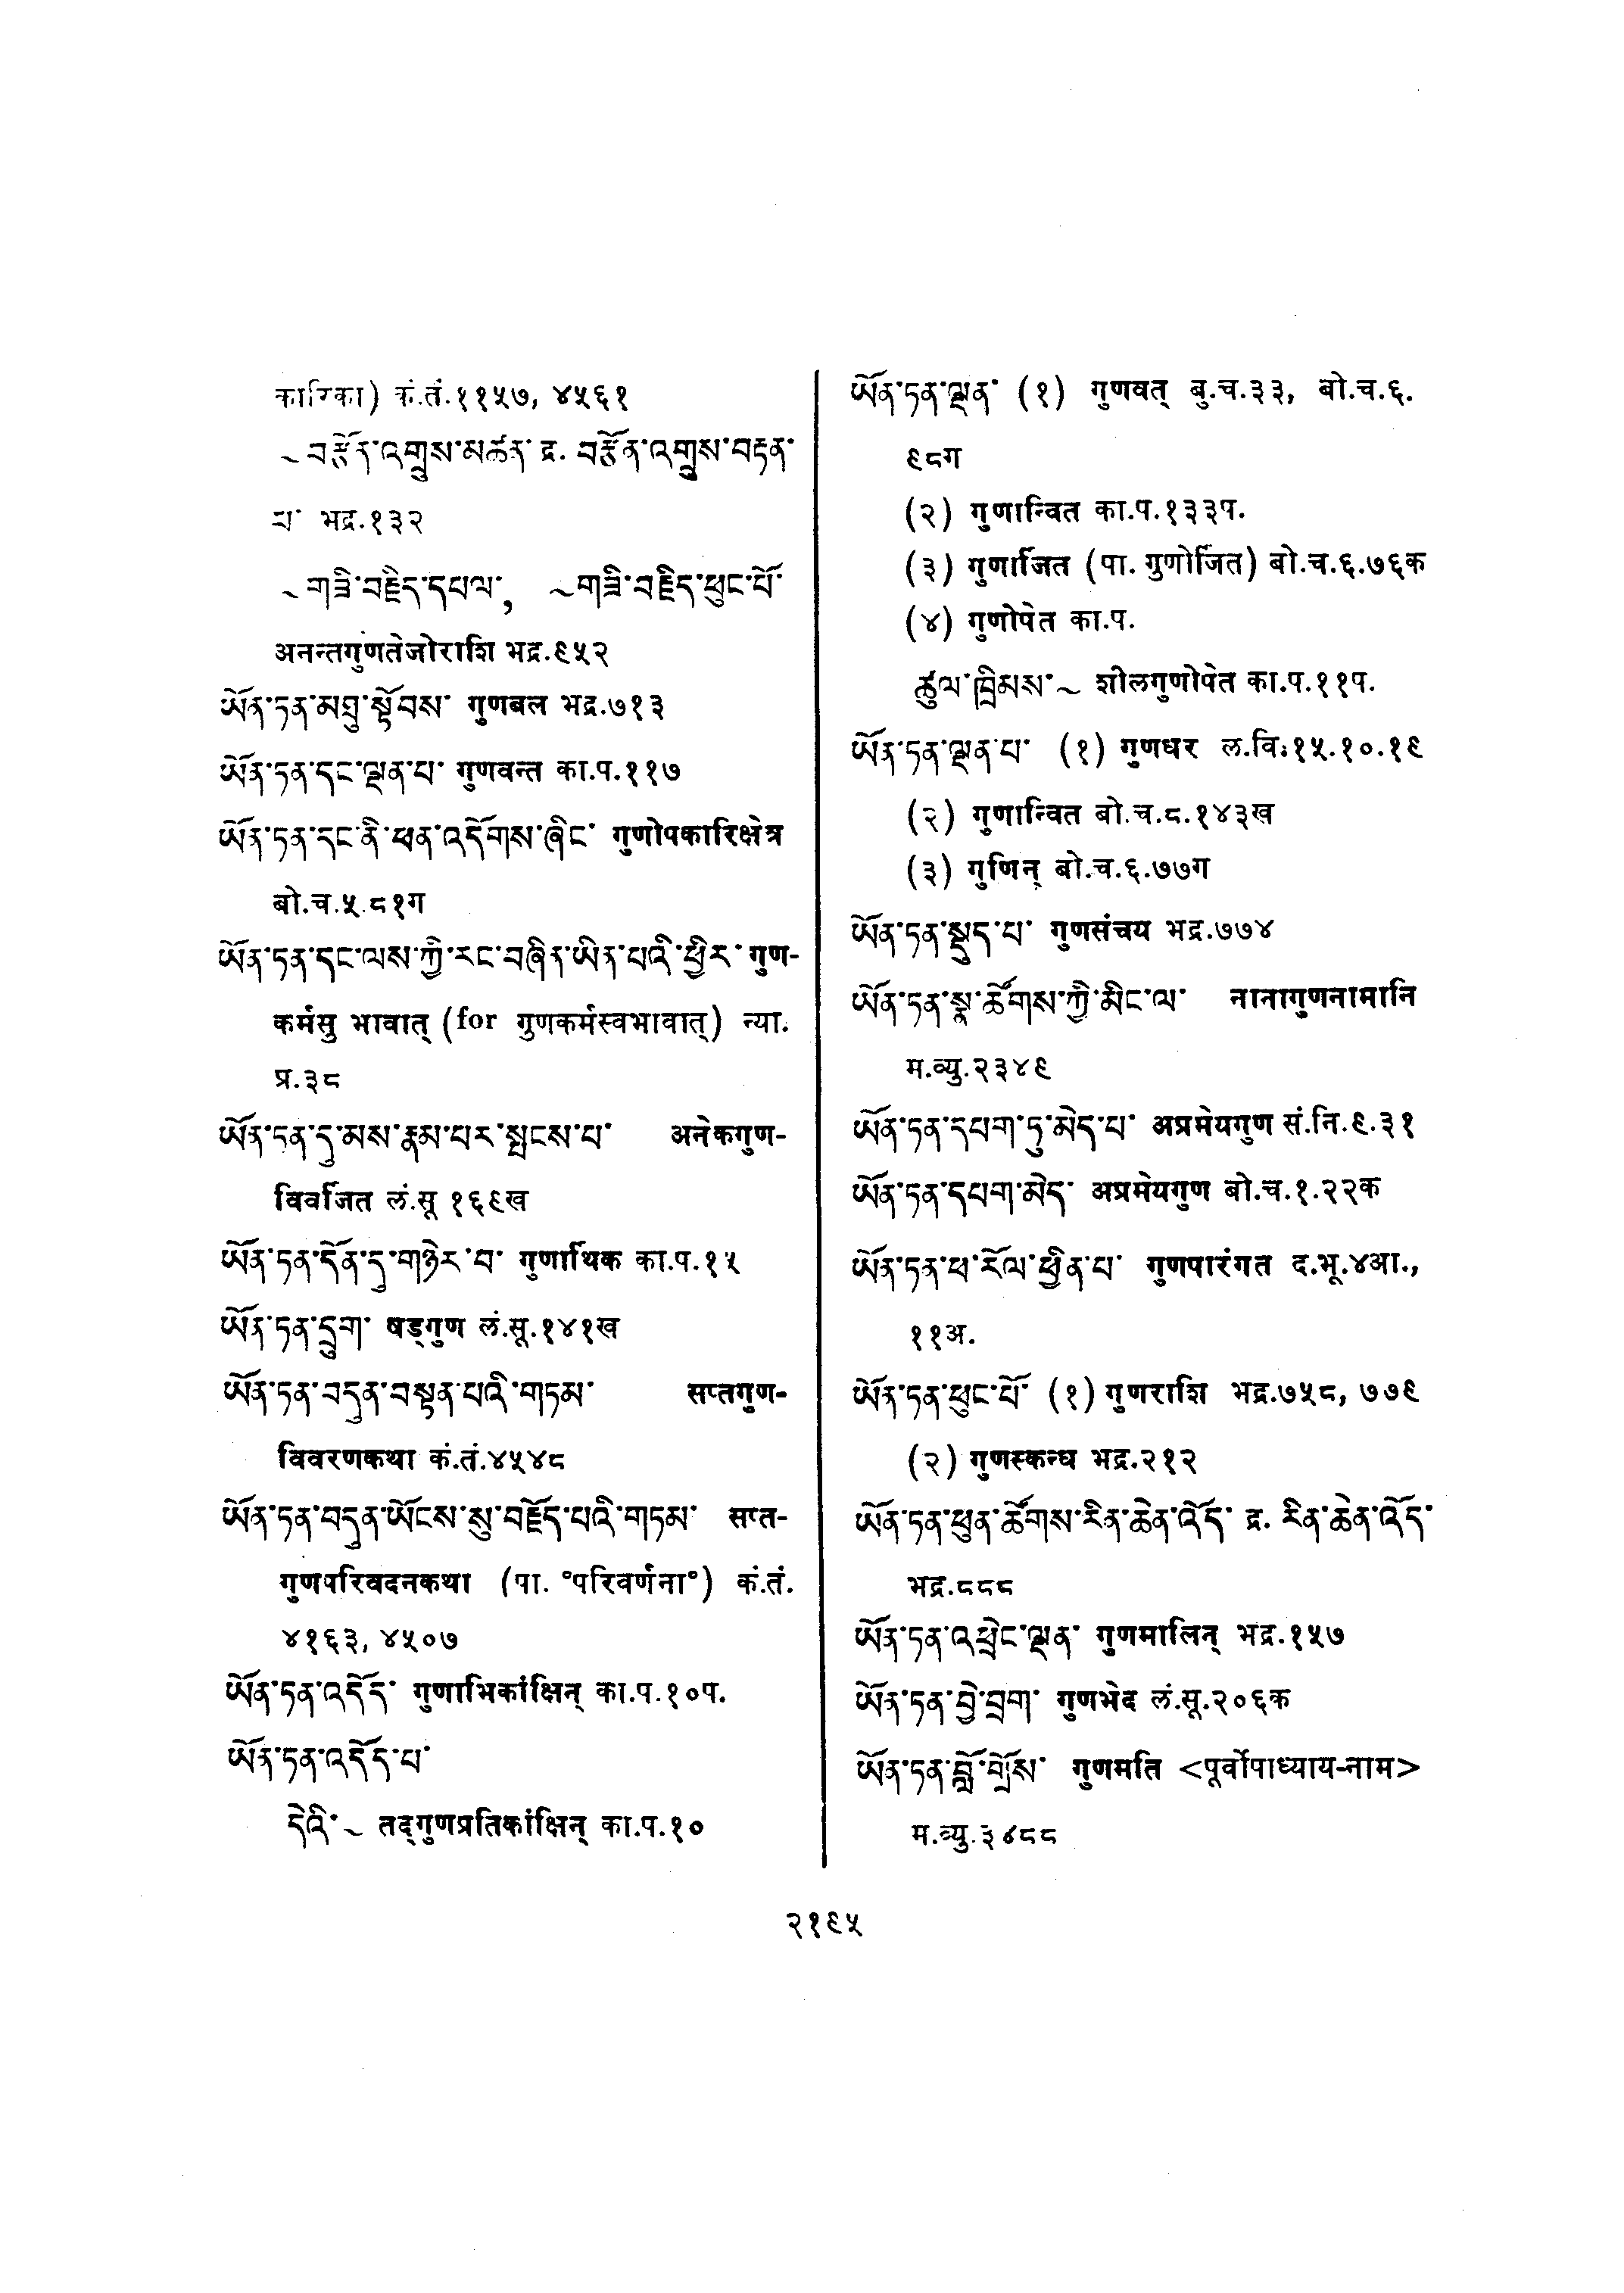 कारिका) कं.तं.११५७, ४५६१
~བརྩོན་འགྲུས་མཚན་ द्र. བརྩོན་འགྲུས་བརྟན་
པ་ भद्र.१३२
~གཟི་བརྗིད་དཔལ་, ~གཟི་བརྗིད་ཕུང་པོ་
अनन्तगुणतेजोराशि भद्र.९५२
ཡོན་ཏན་མཐུ་སྟོབས་ गुणबल भद्र.७१३
ཡོན་ཏན་དང་ལྡན་པ་ गुणवन्त का.प.११७
ཡོན་ཏན་དང་ནི་ཕན་འདོགས་ཞིང་ गुणोपकारिक्षेत्र
बो.च.५.८१ग
ཡོན་ཏན་དང་ལས་ཀྱི་རང་བཞིན་ཡིན་པའི་ཕྱིར་ गुण-
कर्मसु भावात् (for गुणकर्मस्वभावात्) न्या.
प्र.३८
ཡོན་ཏན་དུ་མས་རྣམ་པར་སྤངས་པ་ अनेकगुण-
विवर्जित लं.सू १६९ख
ཡོན་ཏན་དོན་དུ་གཉེར་བ་ गुणार्थिक का.प.१५
ཡོན་ཏན་དྲུག་ षड्गुण लं.सू.१४१ख
ཡོན་ཏན་བདུན་བསྟན་པའི་གཏམ་ सप्तगुण-
विवरणकथा कं.तं.४५४८
ཡོན་ཏན་བདུན་ཡོངས་སུ་བརྗོད་པའི་གཏམ་ सप्त-
गुणपरिवदनकथा (पा. °परिवर्णना°) कं.तं.
४१६३, ४५०७
ཡོན་ཏན་འདོད་ गुणाभिकांक्षिन् का.प.१०प.
ཡོན་ཏན་འདོད་པ་
དེའི་~ तद्गुणप्रतिकांक्षिन् का.प.१०
ཡོན་ཏན་ལྡན་ (१) गुणवत् बु.च.३३, बो.च.६.
९८ग
(२) गुणान्वित का.प.१३३प.
(३) गुणार्जित (पा. गुणोर्जित) बो.च.६.७६क
(४) गुणोपेत का.प.
ཚུལ་ཁྲིམས་~ शीलगुणोपेत का.प.११प.
ཡོན་ཏན་ལྡན་པ་ (१) गुणधर ल.वि.१५.१०.१९
(२) गुणान्वित बो.च.८.१४३ख
(३) गुणिन् बो.च.६.७७ग
ཡོན་ཏན་སྡུད་པ་ गुणसंचय भद्र.७७४
ཡོན་ཏན་སྣ་ཚོགས་ཀྱི་མིང་ལ་ नानागुणनामानि
म.व्यु.२३४९
ཡོན་ཏན་དཔག་ཏུ་མེད་པ་ अप्रमेयगुण सं.नि.९.३१
ཡོན་ཏན་དཔག་མེད་ अप्रमेयगुण बो.च.१.२२क
ཡོན་ཏན་ཕ་རོལ་ཕྱིན་པ་ गुणपारंगत द.भू.४आ.,
११अ.
ཡོན་ཏན་ཕུང་པོ་ (१) गुणराशि भद्र.७५८, ७७९
(२) गुणस्कन्ध भद्र.२१२
ཡོན་ཏན་ཕུན་ཚོགས་རིན་ཆེན་འོད་ द्र. རིན་ཆེན་འོད་
भद्र.८८८
ཡོན་ཏན་འཕྲེང་ལྡན་ गुणमालिन् भद्र.१५७
ཡོན་ཏན་བྱེ་བྲག་ गुणभेद लं.सू.२०६क
ཡོན་ཏན་བློ་གྲོས་ गुणमति <पूर्वोपाध्याय-नाम>
म.व्यु.३४८८
२१९५